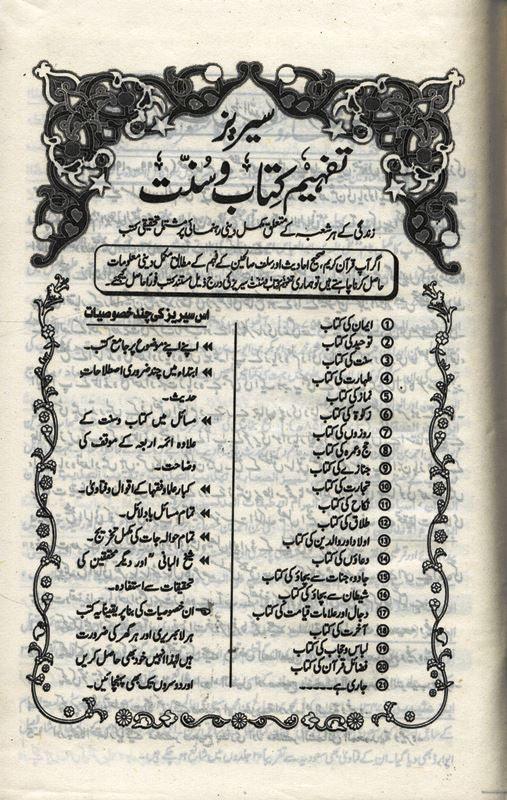 سیریز
تفہیم کتاب و سنت
زندگی کے ہر شعبہ کے متعلق مکمل دینی رہنمائی پر مشتمل تحقیقی کتب
اگر آپ قرآن کریم، صحیح احادیث اور سلف صالحین کے فہم کے مطابق مکمل دینی معلومات
حاصل کرنا چاہتے ہیں تو ہماری تفہیم کتاب و سنت سیریز کی درج ذیل مستند کتب فوراً حاصل کیجئے۔
① ایمان کی کتاب
② توحید کی کتاب
③ سنت کی کتاب
④ طہارت کی کتاب
⑤ نماز کی کتاب
⑥ زکوٰۃ کی کتاب
⑦ روزوں کی کتاب
⑧ حج و عمرہ کی کتاب
⑨ جنازے کی کتاب
⑩ تجارت کی کتاب
⑪ نکاح کی کتاب
⑫ طلاق کی کتاب
⑬ اولاد اور والدین کی کتاب
⑭ دعاؤں کی کتاب
⑮ جادو، جنات سے بچاؤ کی کتاب
⑯ شیطان سے بچاؤ کی کتاب
⑰ دجال اور علامات قیامت کی کتاب
⑱ آخرت کی کتاب
⑲ لباس و حجاب کی کتاب
⑳ فضائل قرآن کی کتاب
㉑ جاری ہے۔۔۔۔۔
اس سیریز کی چند خصوصیات
اپنے اپنے موضوع پر جامع کتب۔
ابتداء میں چند ضروری اصطلاحاتِ
حدیث۔
مسائل میں کتاب و سنت کے
علاوہ ائمہ اربعہ کے موقف کی
وضاحت۔
کبار علما و فقہا کے اقوال و فتاویٰ۔
تمام مسائل با دلائل۔
تمام حوالہ جات کی مکمل تخریج۔
شیخ البانیؒ اور دیگر محققین کی
تحقیقات سے استفادہ۔
ان خصوصیات کی بنا پر یقیناً یہ کتب
ہر لائبریری اور ہر گھر کی ضرورت
ہیں لہٰذا انہیں خود بھی حاصل کریں
اور دوسروں تک بھی پہنچائیں۔